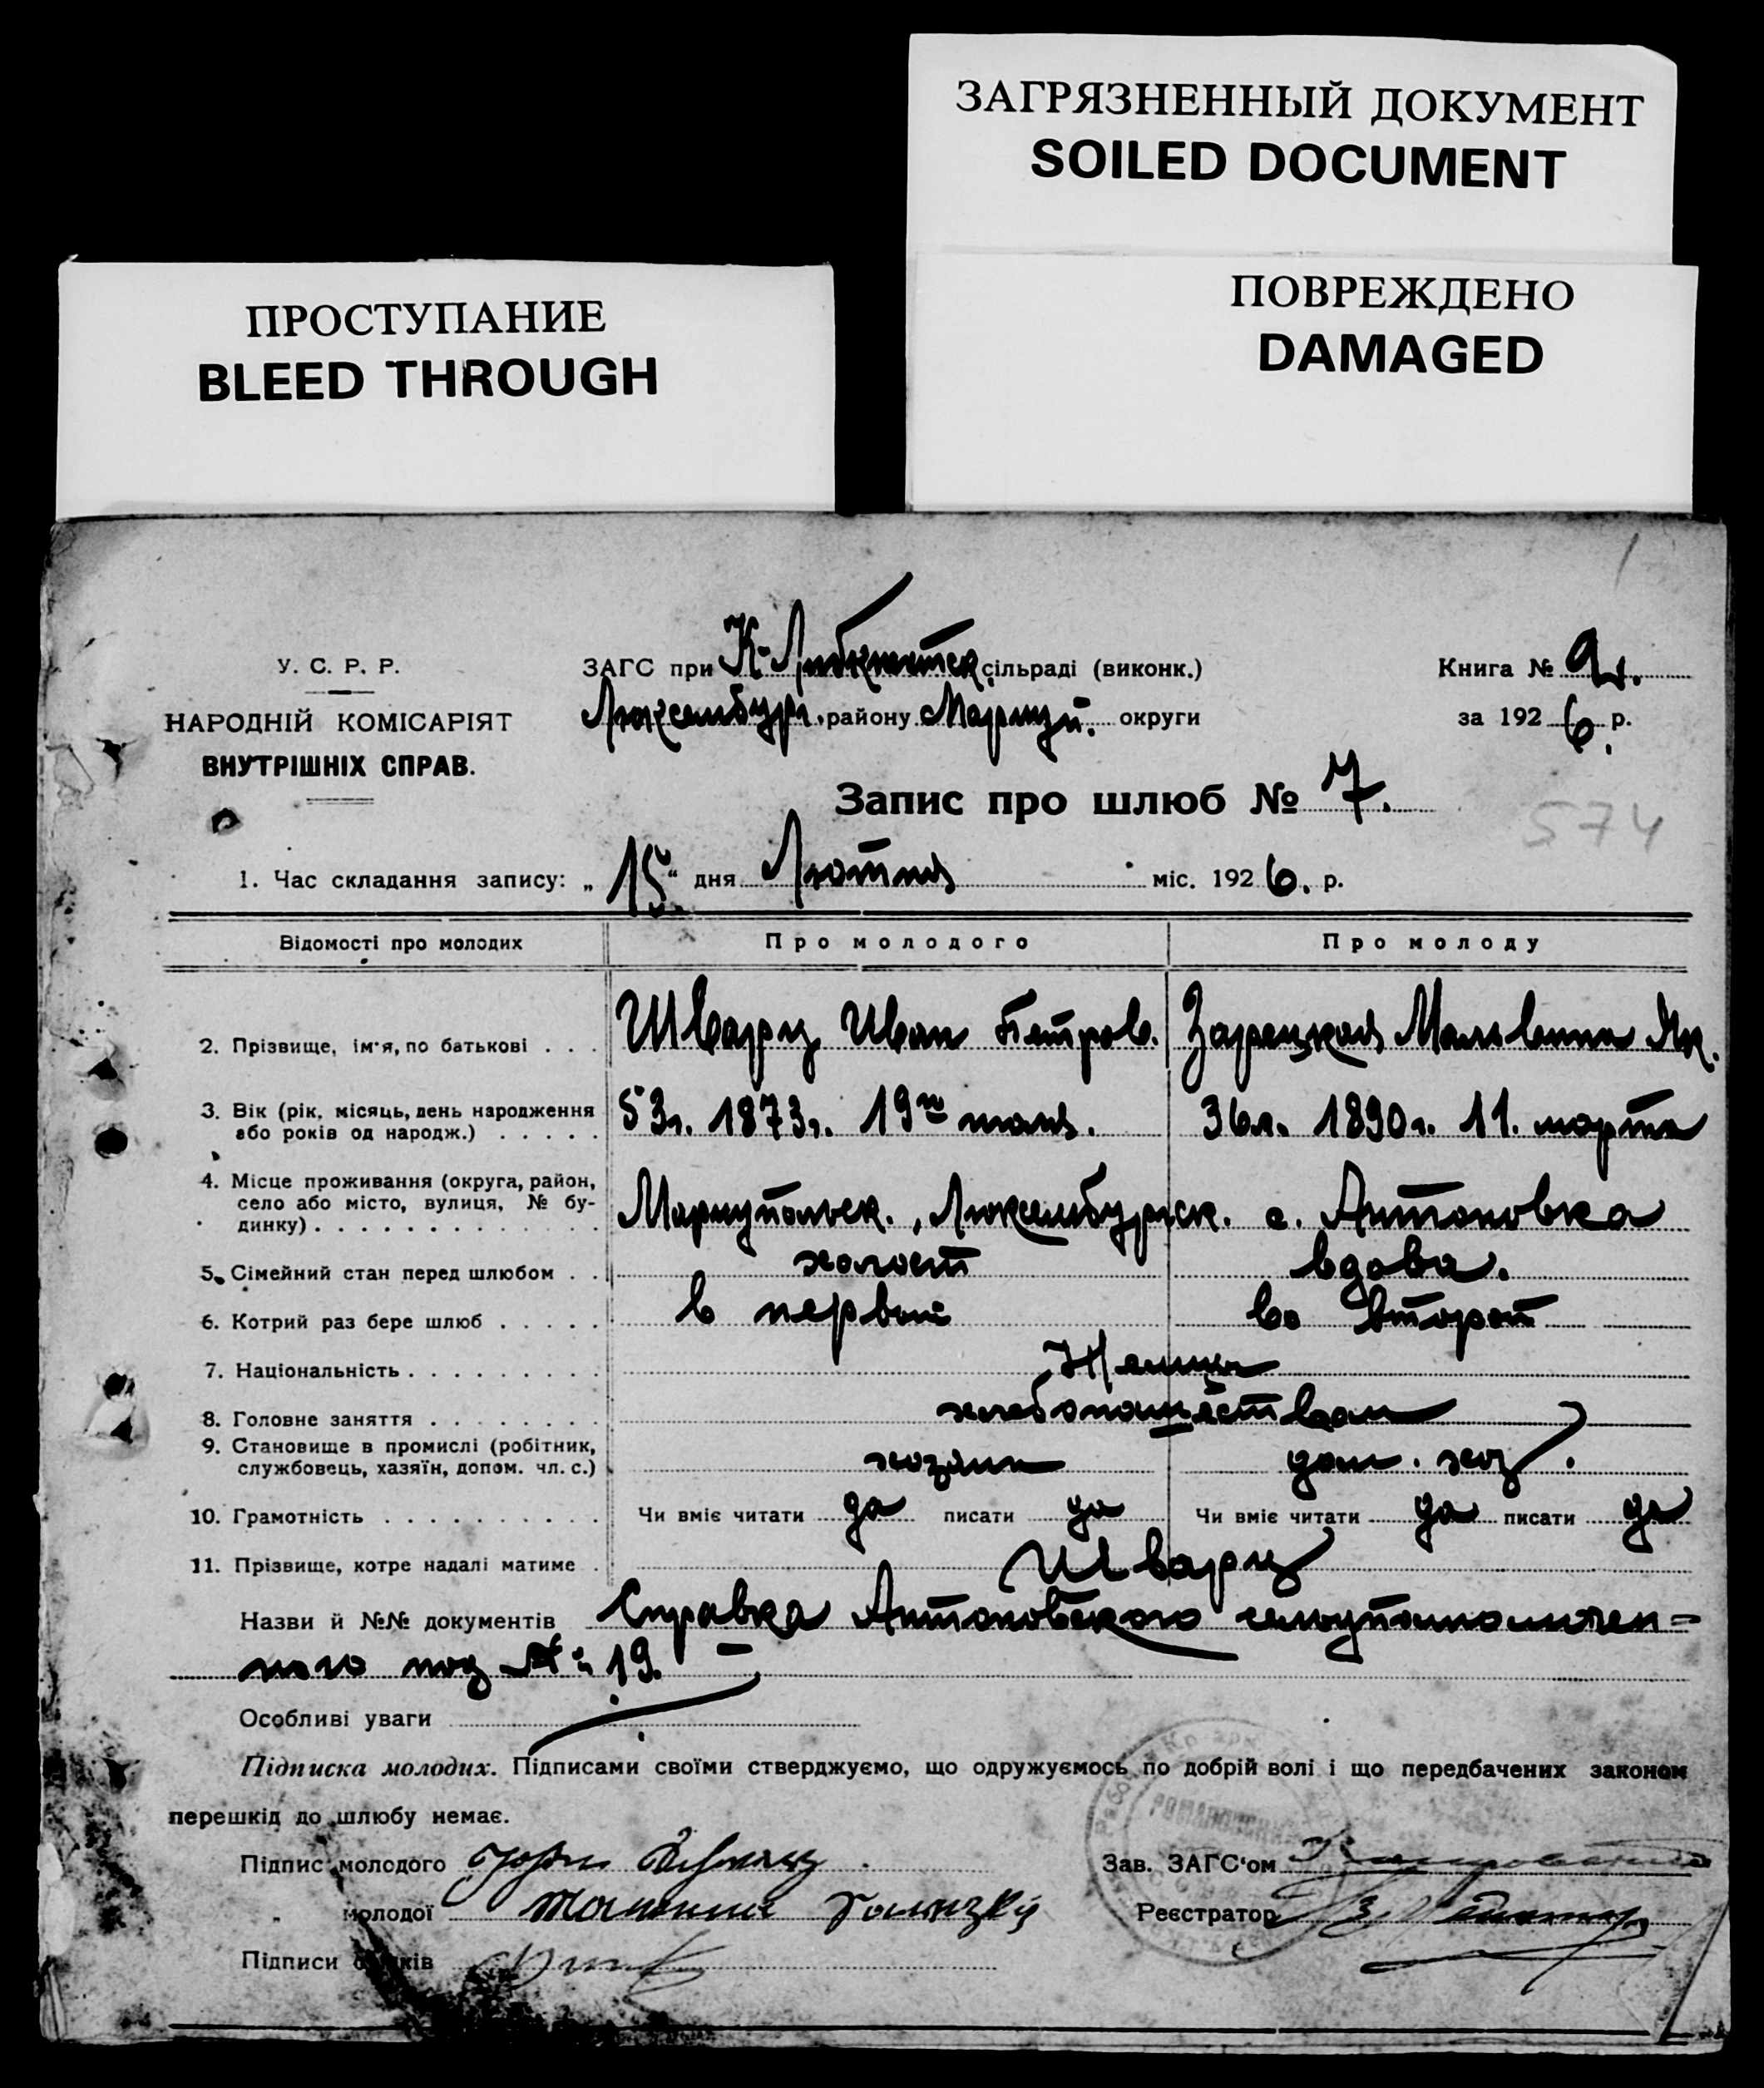 ЗАГРЯЗНЕННЫЙ ДОКУМЕНТ
SOILED DOCUMENT
ПРОСТУПАНИЕ
BLEED THROUGH
ПОВРЕЖДЕНО
DAMAGED
У. С. Р. Р.
НАРОДНІЙ КОМІСАРІЯТ
ВНУТРІШНІХ СПРАВ.
ЗАГС при К-Либкнетск. сільраді (виконк.)
Люксембург. району Мариуп. округи
Книга №
за 1926 р.
Запис про шлюб № 7.
574
1. Час складання запису: „15" дня Лютня міс. 1926. р.
Відомості про молодих Про молодого Про молоду
2. Прізвище, ім'я, по батькові . . . Шварц Иван Петров. Зарецкая Мальвина Як.
3. Вік (рік, місяць, день народження 53г. 1873г. 19го мая. 36л. 1890г. 11. марта
або років од народж.) . . . . .
4. Місце проживання (округа, район,
село або місто, вулиця, № бу- Мариупольск., Люксембургск. с. Антоновка
динку) . . . . . . . . . . . . .
5. Сімейний стан перед шлюбом . . холост вдова.
6. Котрий раз бере шлюб . . . . . в первый во второй
7. Національність . . . . . . . . . Немцы
8. Головне заняття . . . . . . . . хлебопашеством
9. Становище в промислі (робітник,
службовець, хазяїн, допом. чл. с.) хозяин дом. хоз.
10. Грамотність . . . . . . . . . . Чи вміє читати да писати да Чи вміє читати да писати да
11. Прізвище, котре надалі матиме . Шварц
Назви й №№ документів Справка Антоновского сельуполномочен=
ного под № 19. —
Особливі уваги
Підписка молодих. Підписами своїми стверджуємо, що одружуємось по добрій волі і що передбачених законом
перешкід до шлюбу немає.
Підпис молодого
Зав. ЗАГС'ом
" молодої
Реєстратор
Підписи